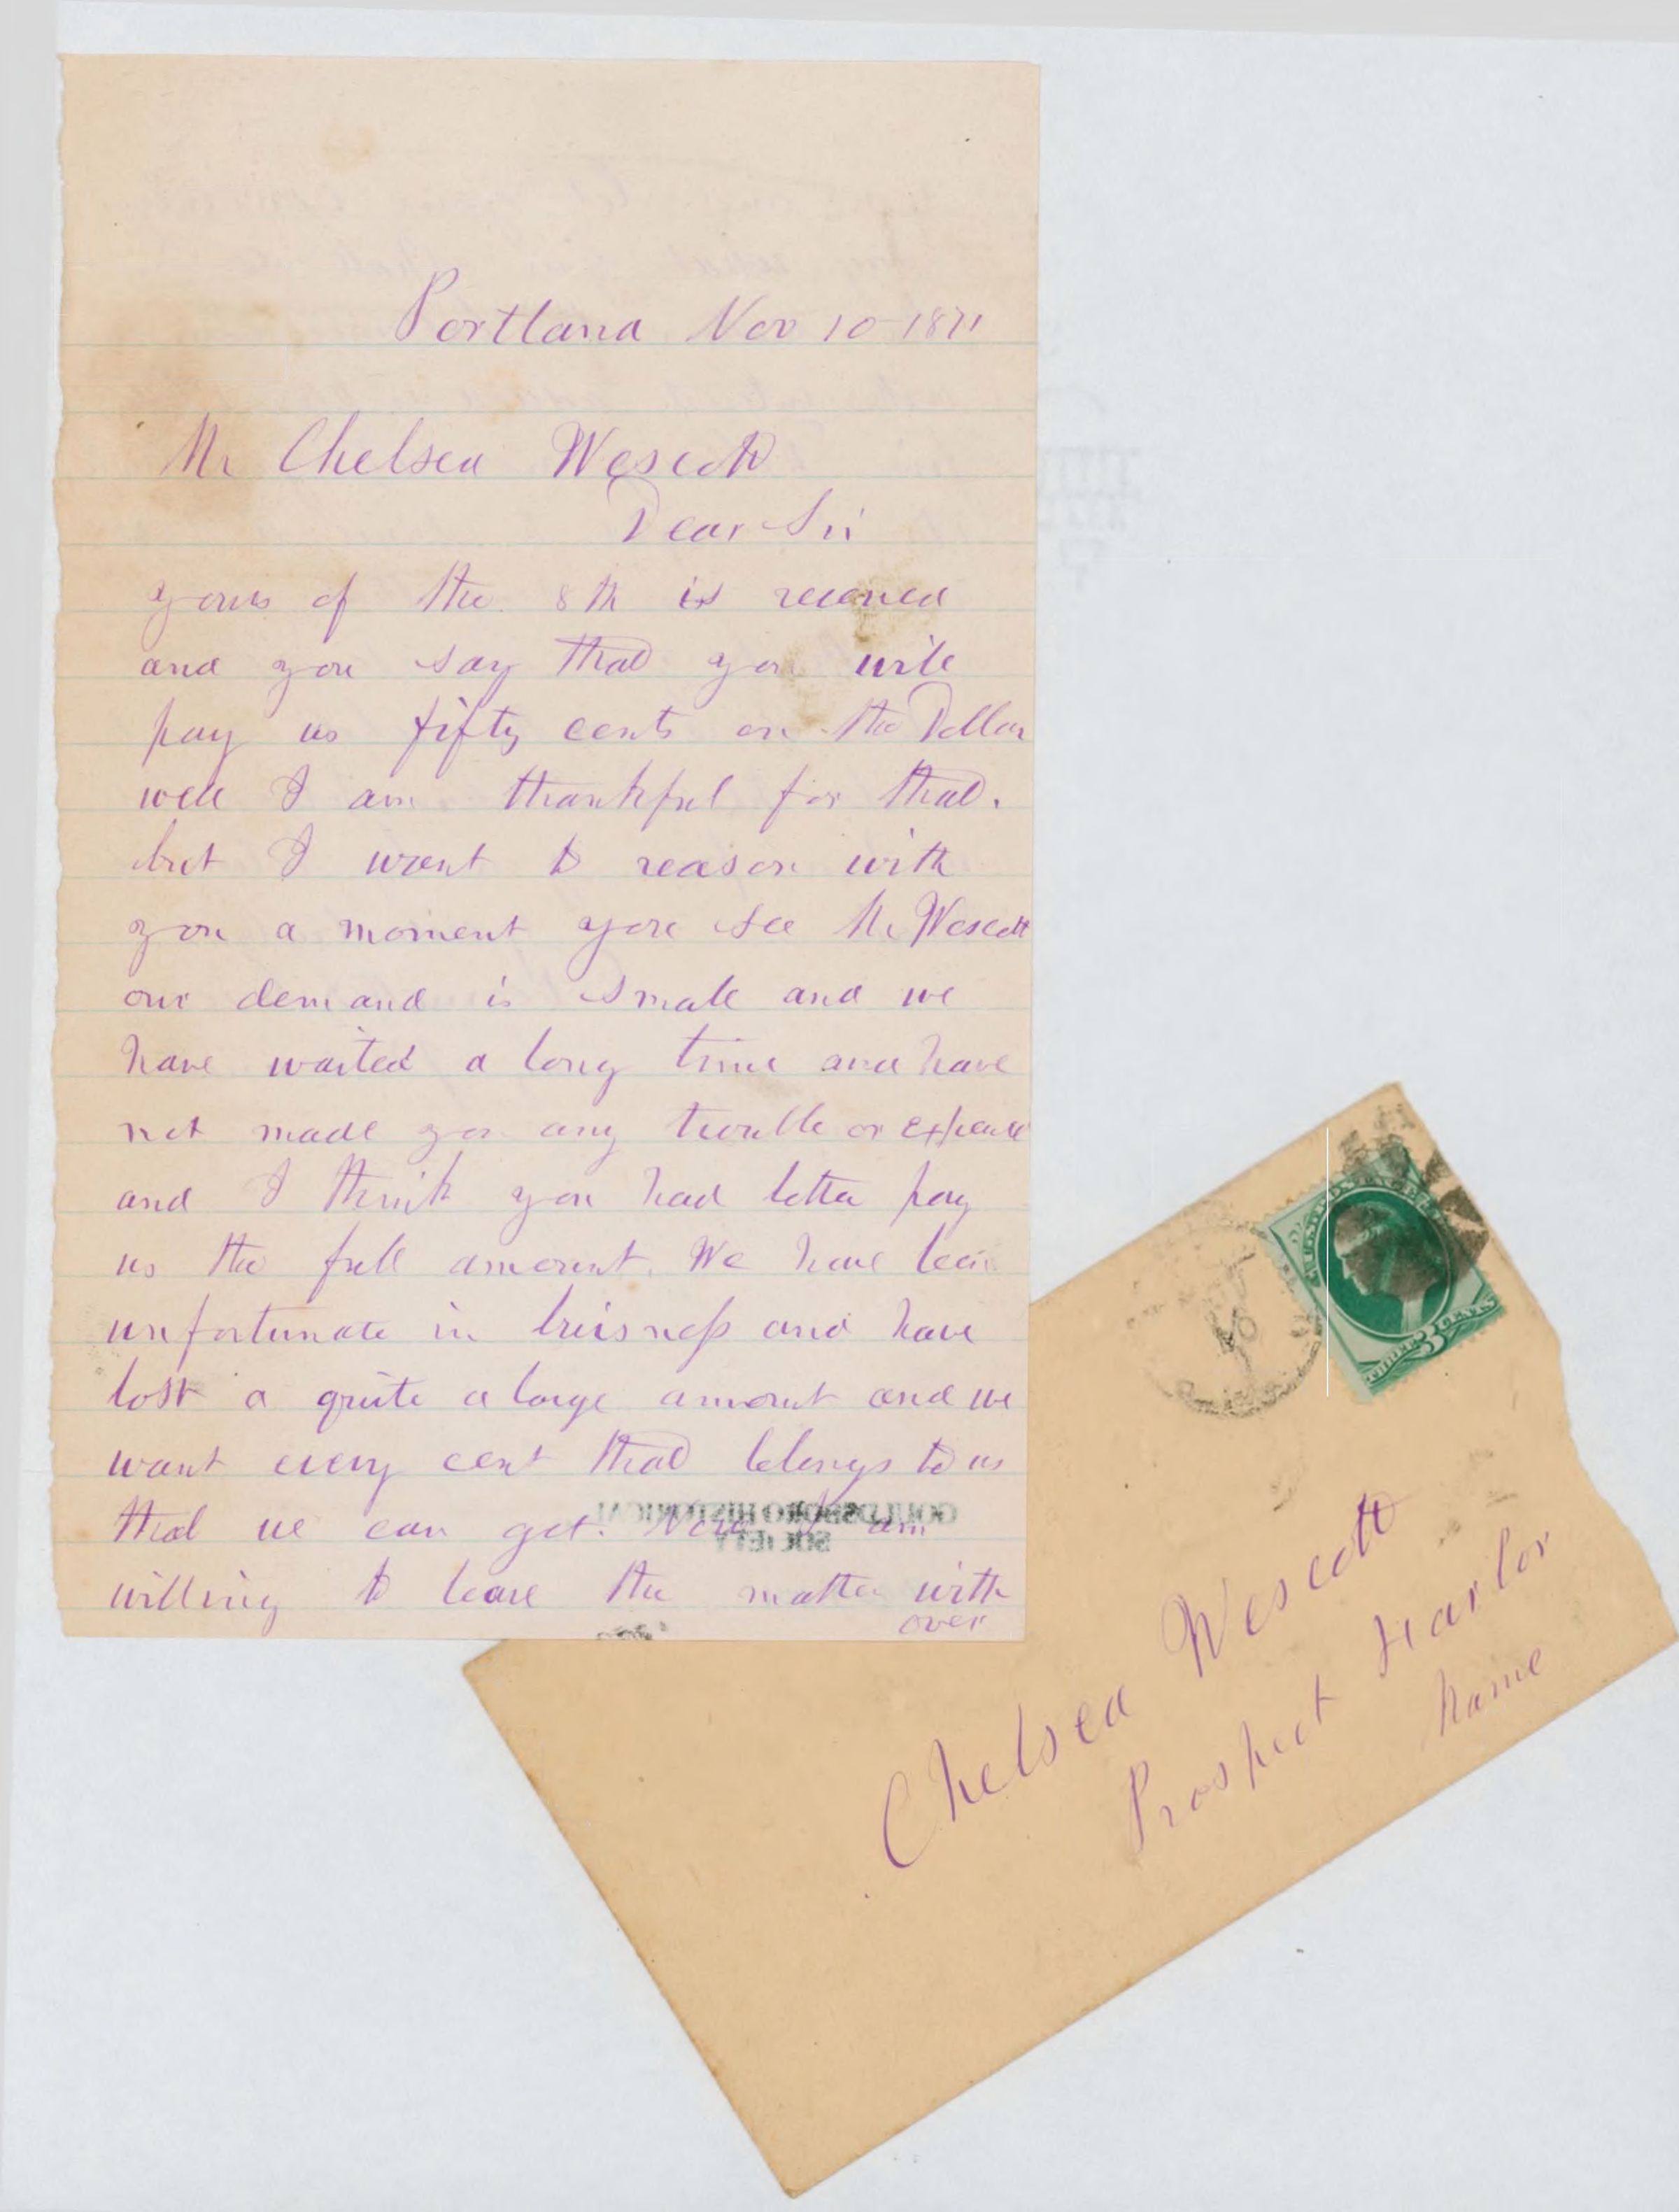 Portland Nov 10 1871
Mr Chelsea Wescott
Dear Sir
yours of the 8th is received
and you say that you will
pay us fifty cents on the Dollar
well I am thankful for that.
but I want to reason with
you a moment you see Mr Wescott
our demand is small and we
have waited a long time and have
not made you any trouble or expense
and I think you had better pay
us the full amount. We have been
unfortunate in buisness and have
lost a quite a large amount and we
want every cent that belongs to us
that we can get. Now I am
GOULDSBORO HISTORICAL
SOCIETY
willing to leave the matter with
over
3 CENTS
Chelsea Wescott
Prospect Harbor
Maine